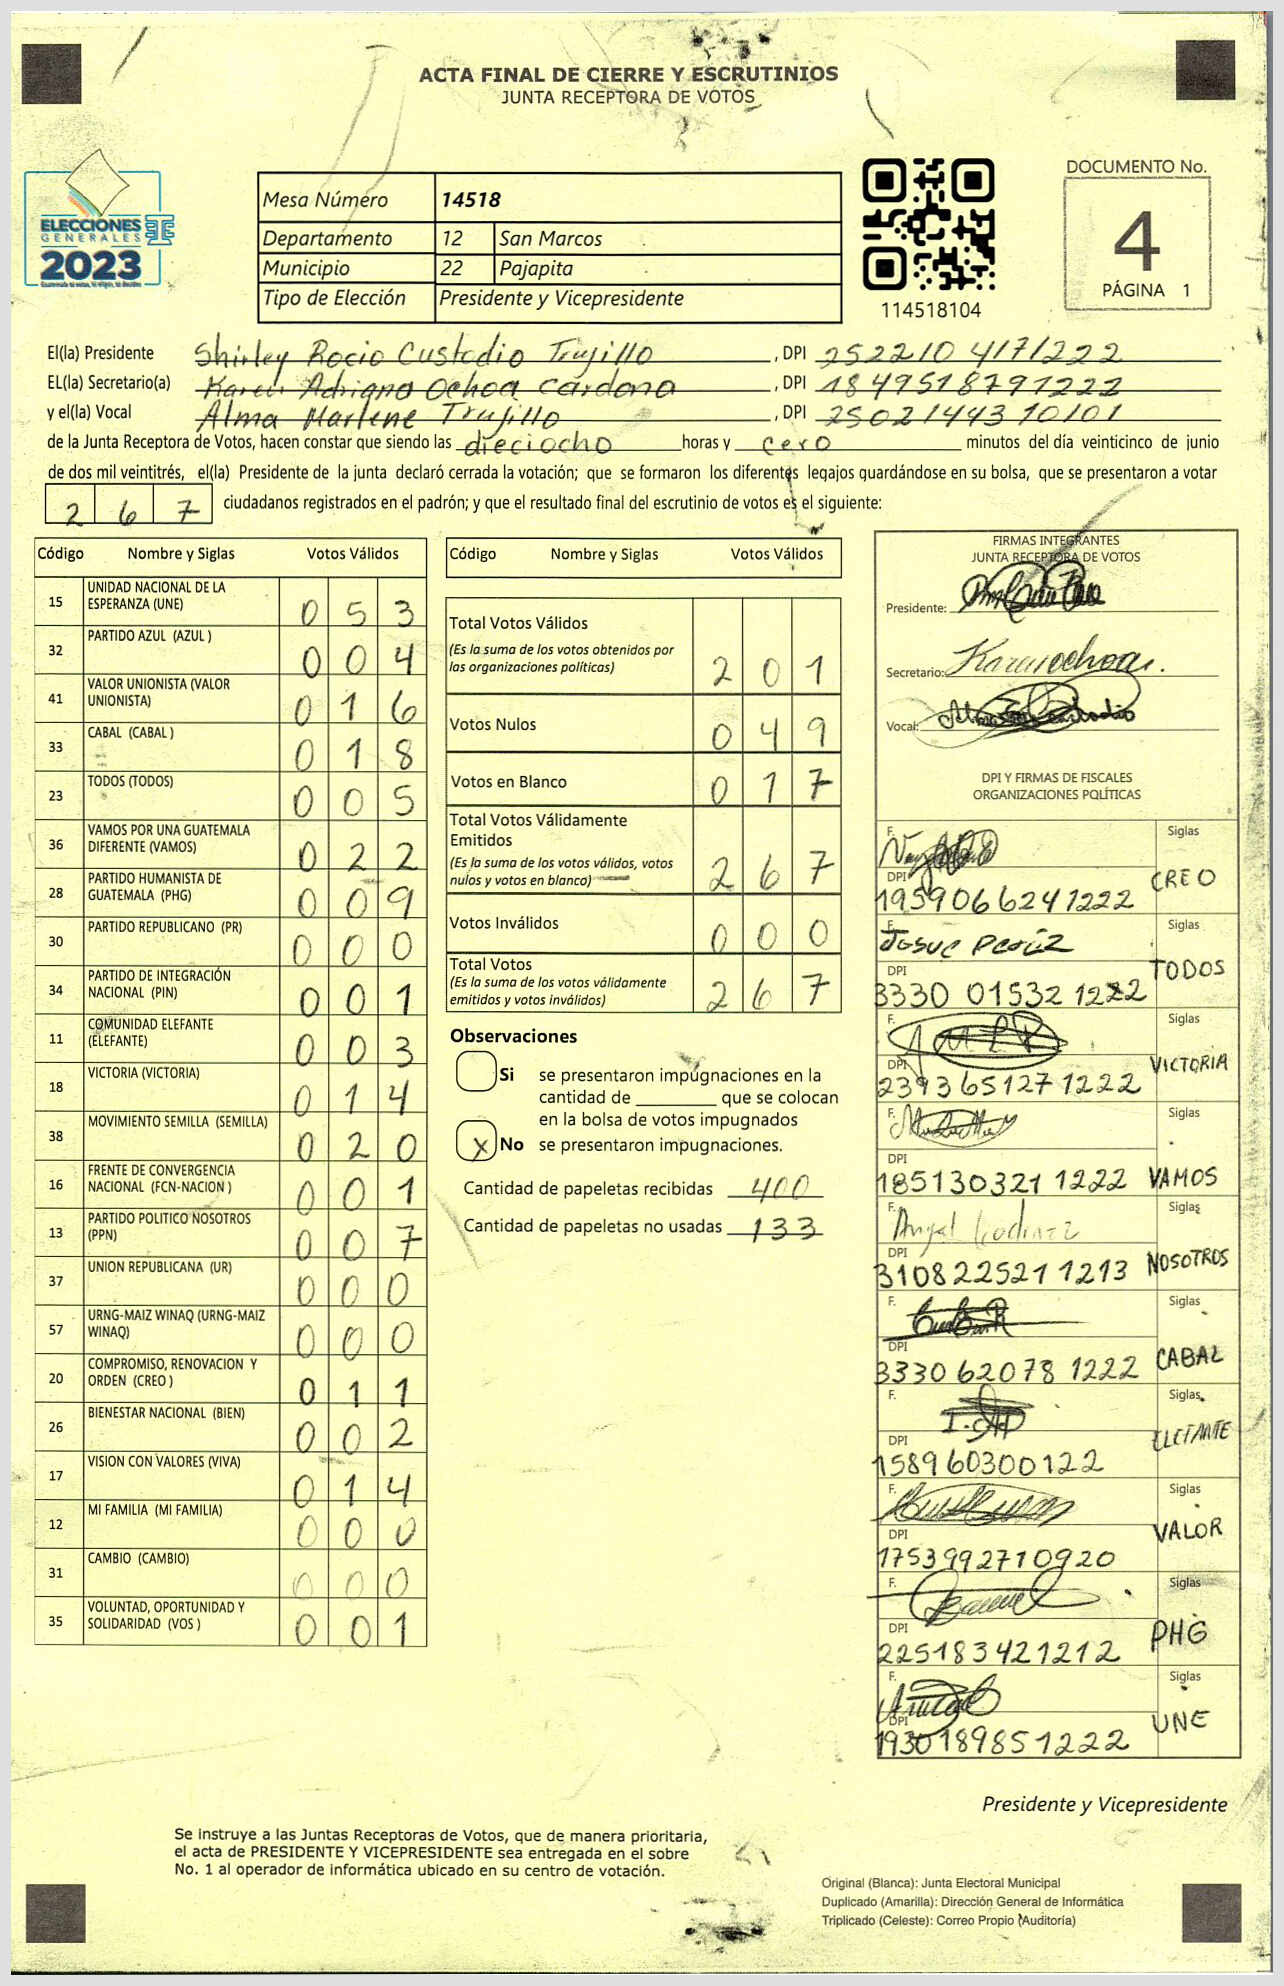 ACTA FINAL DE CIERRE Y ESCRUTINIOS
JUNTA RECEPTORA DE VOTOS
ELECCIONES
GENERALES
2023
Mesa Número 14518
Departamento 12 San Marcos
Municipio 22 Pajapita
Tipo de Elección Presidente y Vicepresidente
114518104
DOCUMENTO No.
4
PÁGINA 1
El(la) Presidente Shirley Rocio Custodio Trujillo, DPI 2522104171222
EL(la) Secretario(a) Karen Adriana Ochoa Cardona, DPI 1849518791222
y el(la) Vocal Alma Marlene Trujillo, DPI 2502144310101
de la Junta Receptora de Votos, hacen constar que siendo las dieciocho horas y cero minutos del día veinticinco de junio
de dos mil veintitrés, el(la) Presidente de la junta declaró cerrada la votación; que se formaron los diferentes legajos guardándose en su bolsa, que se presentaron a votar
267 ciudadanos registrados en el padrón; y que el resultado final del escrutinio de votos es el siguiente:
Código Nombre y Siglas Votos Válidos
15 UNIDAD NACIONAL DE LA ESPERANZA (UNE) 053
32 PARTIDO AZUL (AZUL ) 004
41 VALOR UNIONISTA (VALOR UNIONISTA) 016
33 CABAL (CABAL ) 018
23 TODOS (TODOS) 005
36 VAMOS POR UNA GUATEMALA DIFERENTE (VAMOS) 022
28 PARTIDO HUMANISTA DE GUATEMALA (PHG) 009
30 PARTIDO REPUBLICANO (PR) 000
34 PARTIDO DE INTEGRACIÓN NACIONAL (PIN) 001
11 COMUNIDAD ELEFANTE (ELEFANTE) 003
18 VICTORIA (VICTORIA) 014
38 MOVIMIENTO SEMILLA (SEMILLA) 020
16 FRENTE DE CONVERGENCIA NACIONAL (FCN-NACION ) 001
13 PARTIDO POLITICO NOSOTROS (PPN) 007
37 UNION REPUBLICANA (UR) 000
57 URNG-MAIZ WINAQ (URNG-MAIZ WINAQ) 000
20 COMPROMISO, RENOVACION Y ORDEN (CREO ) 011
26 BIENESTAR NACIONAL (BIEN) 002
17 VISION CON VALORES (VIVA) 014
12 MI FAMILIA (MI FAMILIA) 000
31 CAMBIO (CAMBIO) 000
35 VOLUNTAD, OPORTUNIDAD Y SOLIDARIDAD (VOS ) 001
Código Nombre y Siglas Votos Válidos
Total Votos Válidos
(Es la suma de los votos obtenidos por
las organizaciones políticas) 201
Votos Nulos 049
Votos en Blanco 017
Total Votos Válidamente
Emitidos
(Es la suma de los votos válidos, votos
nulos y votos en blanco) 267
Votos Inválidos 000
Total Votos
(Es la suma de los votos válidamente
emitidos y votos inválidos) 267
Observaciones
Si se presentaron impugnaciones en la
cantidad de ________ que se colocan
en la bolsa de votos impugnados
X No se presentaron impugnaciones.
Cantidad de papeletas recibidas 400
Cantidad de papeletas no usadas 133
FIRMAS INTEGRANTES
JUNTA RECEPTORA DE VOTOS
Presidente:
Secretario: Karen Ochoa
Vocal:
DPI Y FIRMAS DE FISCALES
ORGANIZACIONES POLÍTICAS
F. Siglas
DPI 1959066241222 CREO
F. Josue Perez Siglas
DPI 3330015321222 TODOS
F. Siglas
DPI 2393651271222 VICTORIA
F. Siglas
DPI 1851303211222 VAMOS
F. Angel Godinez Siglas
DPI 3108225211213 NOSOTROS
F. Siglas
DPI 3330620781222 CABAL
F. Siglas
DPI 158960300122 ELEFANTE
F. Siglas
DPI 1753992710920 VALOR
F. Siglas
DPI 225183421212 PHG
F. Siglas
DPI 1930189851222 UNE
Presidente y Vicepresidente
Se instruye a las Juntas Receptoras de Votos, que de manera prioritaria,
el acta de PRESIDENTE Y VICEPRESIDENTE sea entregada en el sobre
No. 1 al operador de informática ubicado en su centro de votación.
Original (Blanca): Junta Electoral Municipal
Duplicado (Amarilla): Dirección General de Informática
Triplicado (Celeste): Correo Propio (Auditoría)